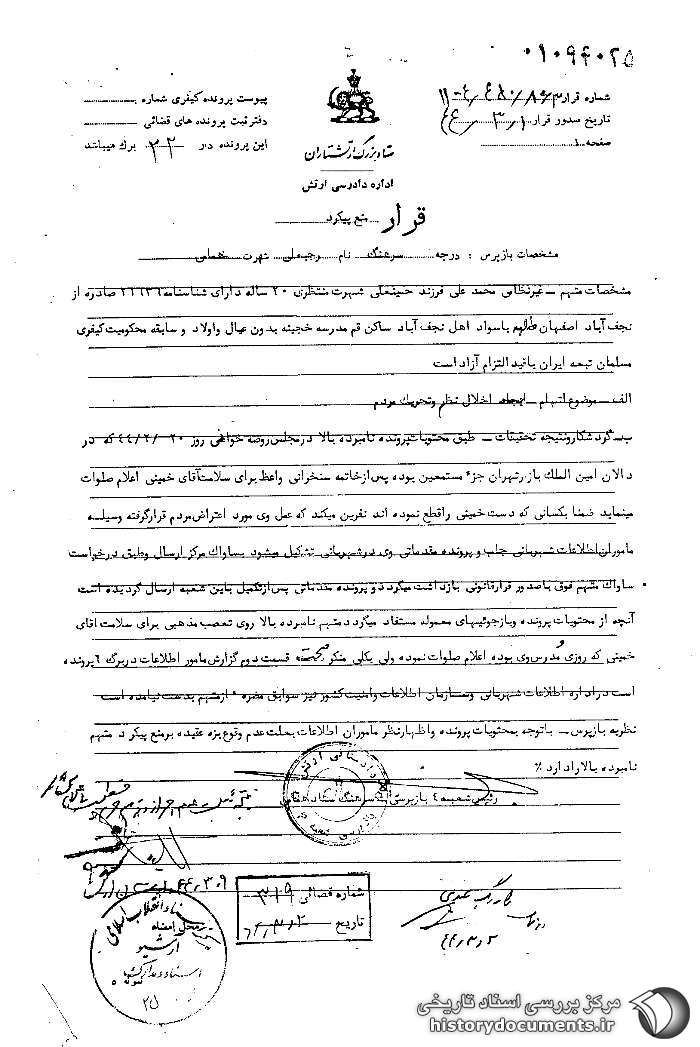 ۰۱۰۹۴۰۲۵
شماره قرار
تاریخ صدور قرار ۴۴/۳/۱
صفحه ۱
ستاد بزرگ ارتشتاران
اداره دادرسی ارتش
پیوست پرونده کیفری شماره
دفتر ثبت پرونده های قضائی
این پرونده در ۳۲ برک میباشد
قرار منع پیکرد
مشخصات بازپرس : درجه سرهنگ نام رجبعلی شهرت
مشخصات متهم ــ غیرنظامی محمد علی فرزند حسینعلی شهرت منتظری ۲۰ ساله دارای شناسنامه صادره از
نجف آباد اصفهان باسواد اهل نجف آباد ساکن قم مدرسه حجتیه بدون عیال واولاد و سابقه محکومیت کیفری
مسلمان تبعه ایران باقید التزام آزاد است
الف ــ موضوع اتهام ــ اخلال نظم وتحریک مردم
ب ــ گردشکارونتیجه تحقیقات ــ طبق محتویات پرونده نامبرده بالا درمجلس روضه خوانی روز ۴۴/۲/۲۰ که در
دالان امین الملک بازرتهران جزء مستمعین بوده پس ازخاتمه سخنرانی واعظ برای سلامت آقای خمینی اعلام صلوات
مینماید ضمنا بکسانی که دست خمینی راقطع نموده اند نفرین میکند که عمل وی مورد اعتراض مردم قرارگرفته وسیله
ماموران اطلاعات شهربانی جلب و پرونده مقدماتی وی درشهربانی تشکیل میشود بساواک مرکز ارسال وطبق درخواست
ساواک متهم فوق باصدور قرارقانونی بازداشت میگردد و پرونده مقدماتی پس ازتکمیل باین شعبه ارسال گردیده است
آنچه از محتویات پرونده وبازجوئیهای معموله مستفاد میگردد متهم نامبرده بالا روی تعصب مذهبی برای سلامت اقای
خمینی که روزی مدرس وی بوده اعلام صلوات نموده ولی بکلی منکر صحت قسمت دوم گزارش مامور اطلاعات دربرگ ۶ پرونده
است دراداره اطلاعات شهربانی وسازمان اطلاعات وامنیت کشور نیز سوابق مضره ازمتهم بدست نیامده است
نظریه بازپرس ــ باتوجه بمحتویات پرونده واظهارنظر ماموران اطلاعات بعلت عدم وقوع بزه عقیده برمنع پیکرد متهم
نامبرده بالارادارد ٪
رئیس شعبه ۴ بازپرسی سرهنگ ستاد
دادستانی ارتش
۴۴/۳/۹
شماره قضائی ۳۱۹
تاریخ ۴۴/۳/۲
۴۴/۳/۲
اسناد انقلاب اسلامی
محل امضاء
آرشیو
۲۵
مرکز بررسی اسناد تاریخی
historydocuments.ir